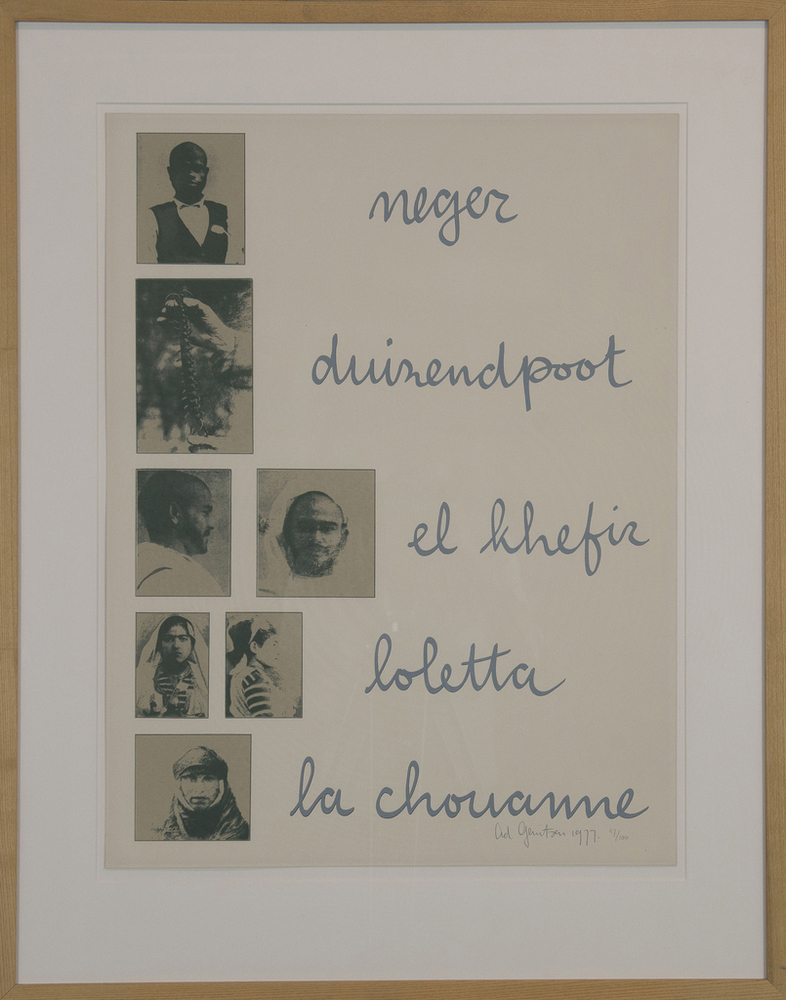 neger
duizendpoot
el khefir
loletta
la chouanne
Ad Gerritsen 1977.